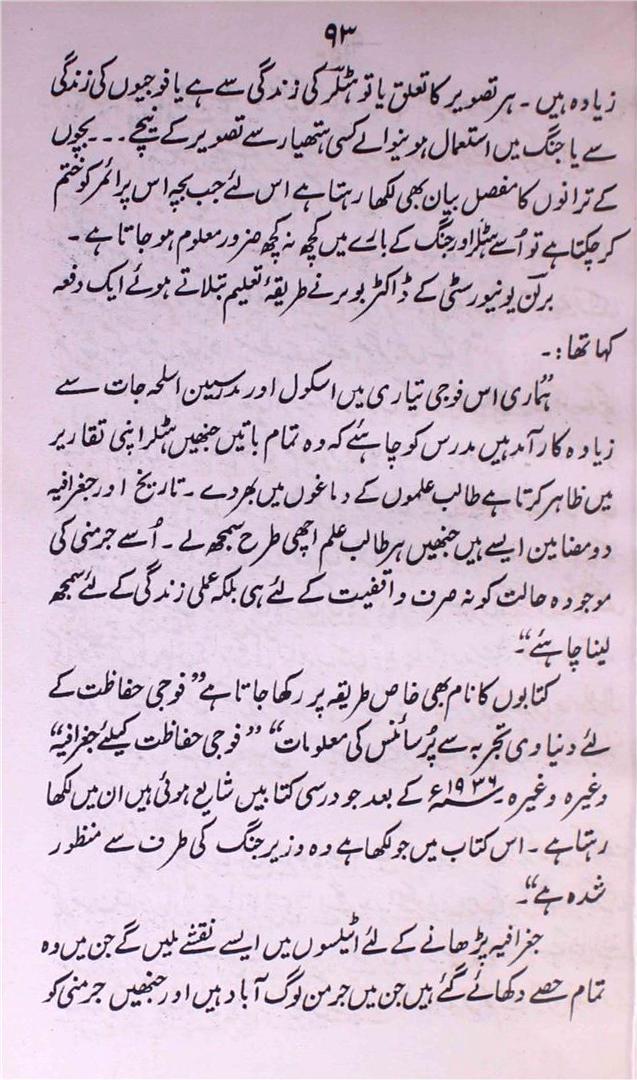 ۹۳
زیادہ ہیں۔ ہر تصویر کا تعلق یا تو ہٹلر کی زندگی سے ہے یا فوجیوں کی زندگی
سے یا جنگ میں استعمال ہونیوالے کسی ہتھیار سے تصویر کے نیچے ۔۔۔ بچوں
کے ترانوں کا مفصل بیان بھی لکھا رہتا ہے اس لئے جب بچہ اس پرائمر کو ختم
کر چکتا ہے تو اُسے ہٹلر اور جنگ کے بارے میں کچھ نہ کچھ ضرور معلوم ہو جاتا ہے۔
برلن یونیورسٹی کے ڈاکٹر بوبر نے طریقۂ تعلیم بتلاتے ہوئے ایک دفعہ
کہا تھا:۔
”ہماری اس فوجی تیاری میں اسکول اور مدرسین اسلحہ جات سے
زیادہ کارآمد ہیں مدرس کو چاہئے کہ وہ تمام باتیں جنھیں ہٹلر اپنی تقاریر
میں ظاہر کرتا ہے طالب علموں کے دماغوں میں بھر دے۔ تاریخ اور جغرافیہ
دو مضامین ایسے ہیں جنھیں ہر طالب علم اچھی طرح سمجھ لے۔ اُسے جرمنی کی
موجودہ حالت کو نہ صرف واقفیت کے لئے ہی بلکہ عملی زندگی کے لئے سمجھ
لینا چاہئے“۔
کتابوں کا نام بھی خاص طریقہ پر رکھا جاتا ہے ”فوجی حفاظت کے
لئے دنیاوی تجربہ سے پُر سائنس کی معلومات“ ”فوجی حفاظت کیلئے جغرافیہ“
وغیرہ وغیرہ ۔ ۱۹۳۶ء کے بعد جو درسی کتابیں شایع ہوئی ہیں ان میں لکھا
رہتا ہے۔ اس کتاب میں جو لکھا ہے وہ وزیر جنگ کی طرف سے منظور
شدہ ہے“۔
جغرافیہ پڑھانے کے لئے اٹیلسوں میں ایسے نقشے ملیں گے جن میں وہ
تمام حصے دکھائے گئے ہیں جن میں جرمن لوگ آباد ہیں اور جنھیں جرمنی کو